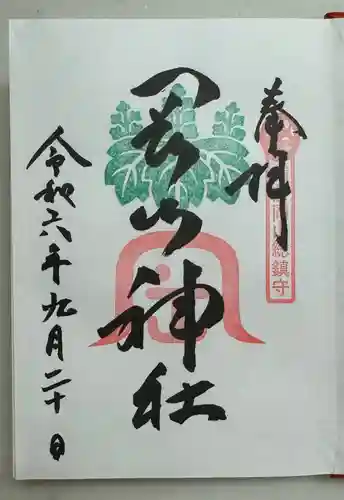 奉拝
総鎮守
岡山神社
令和六年九月二十日